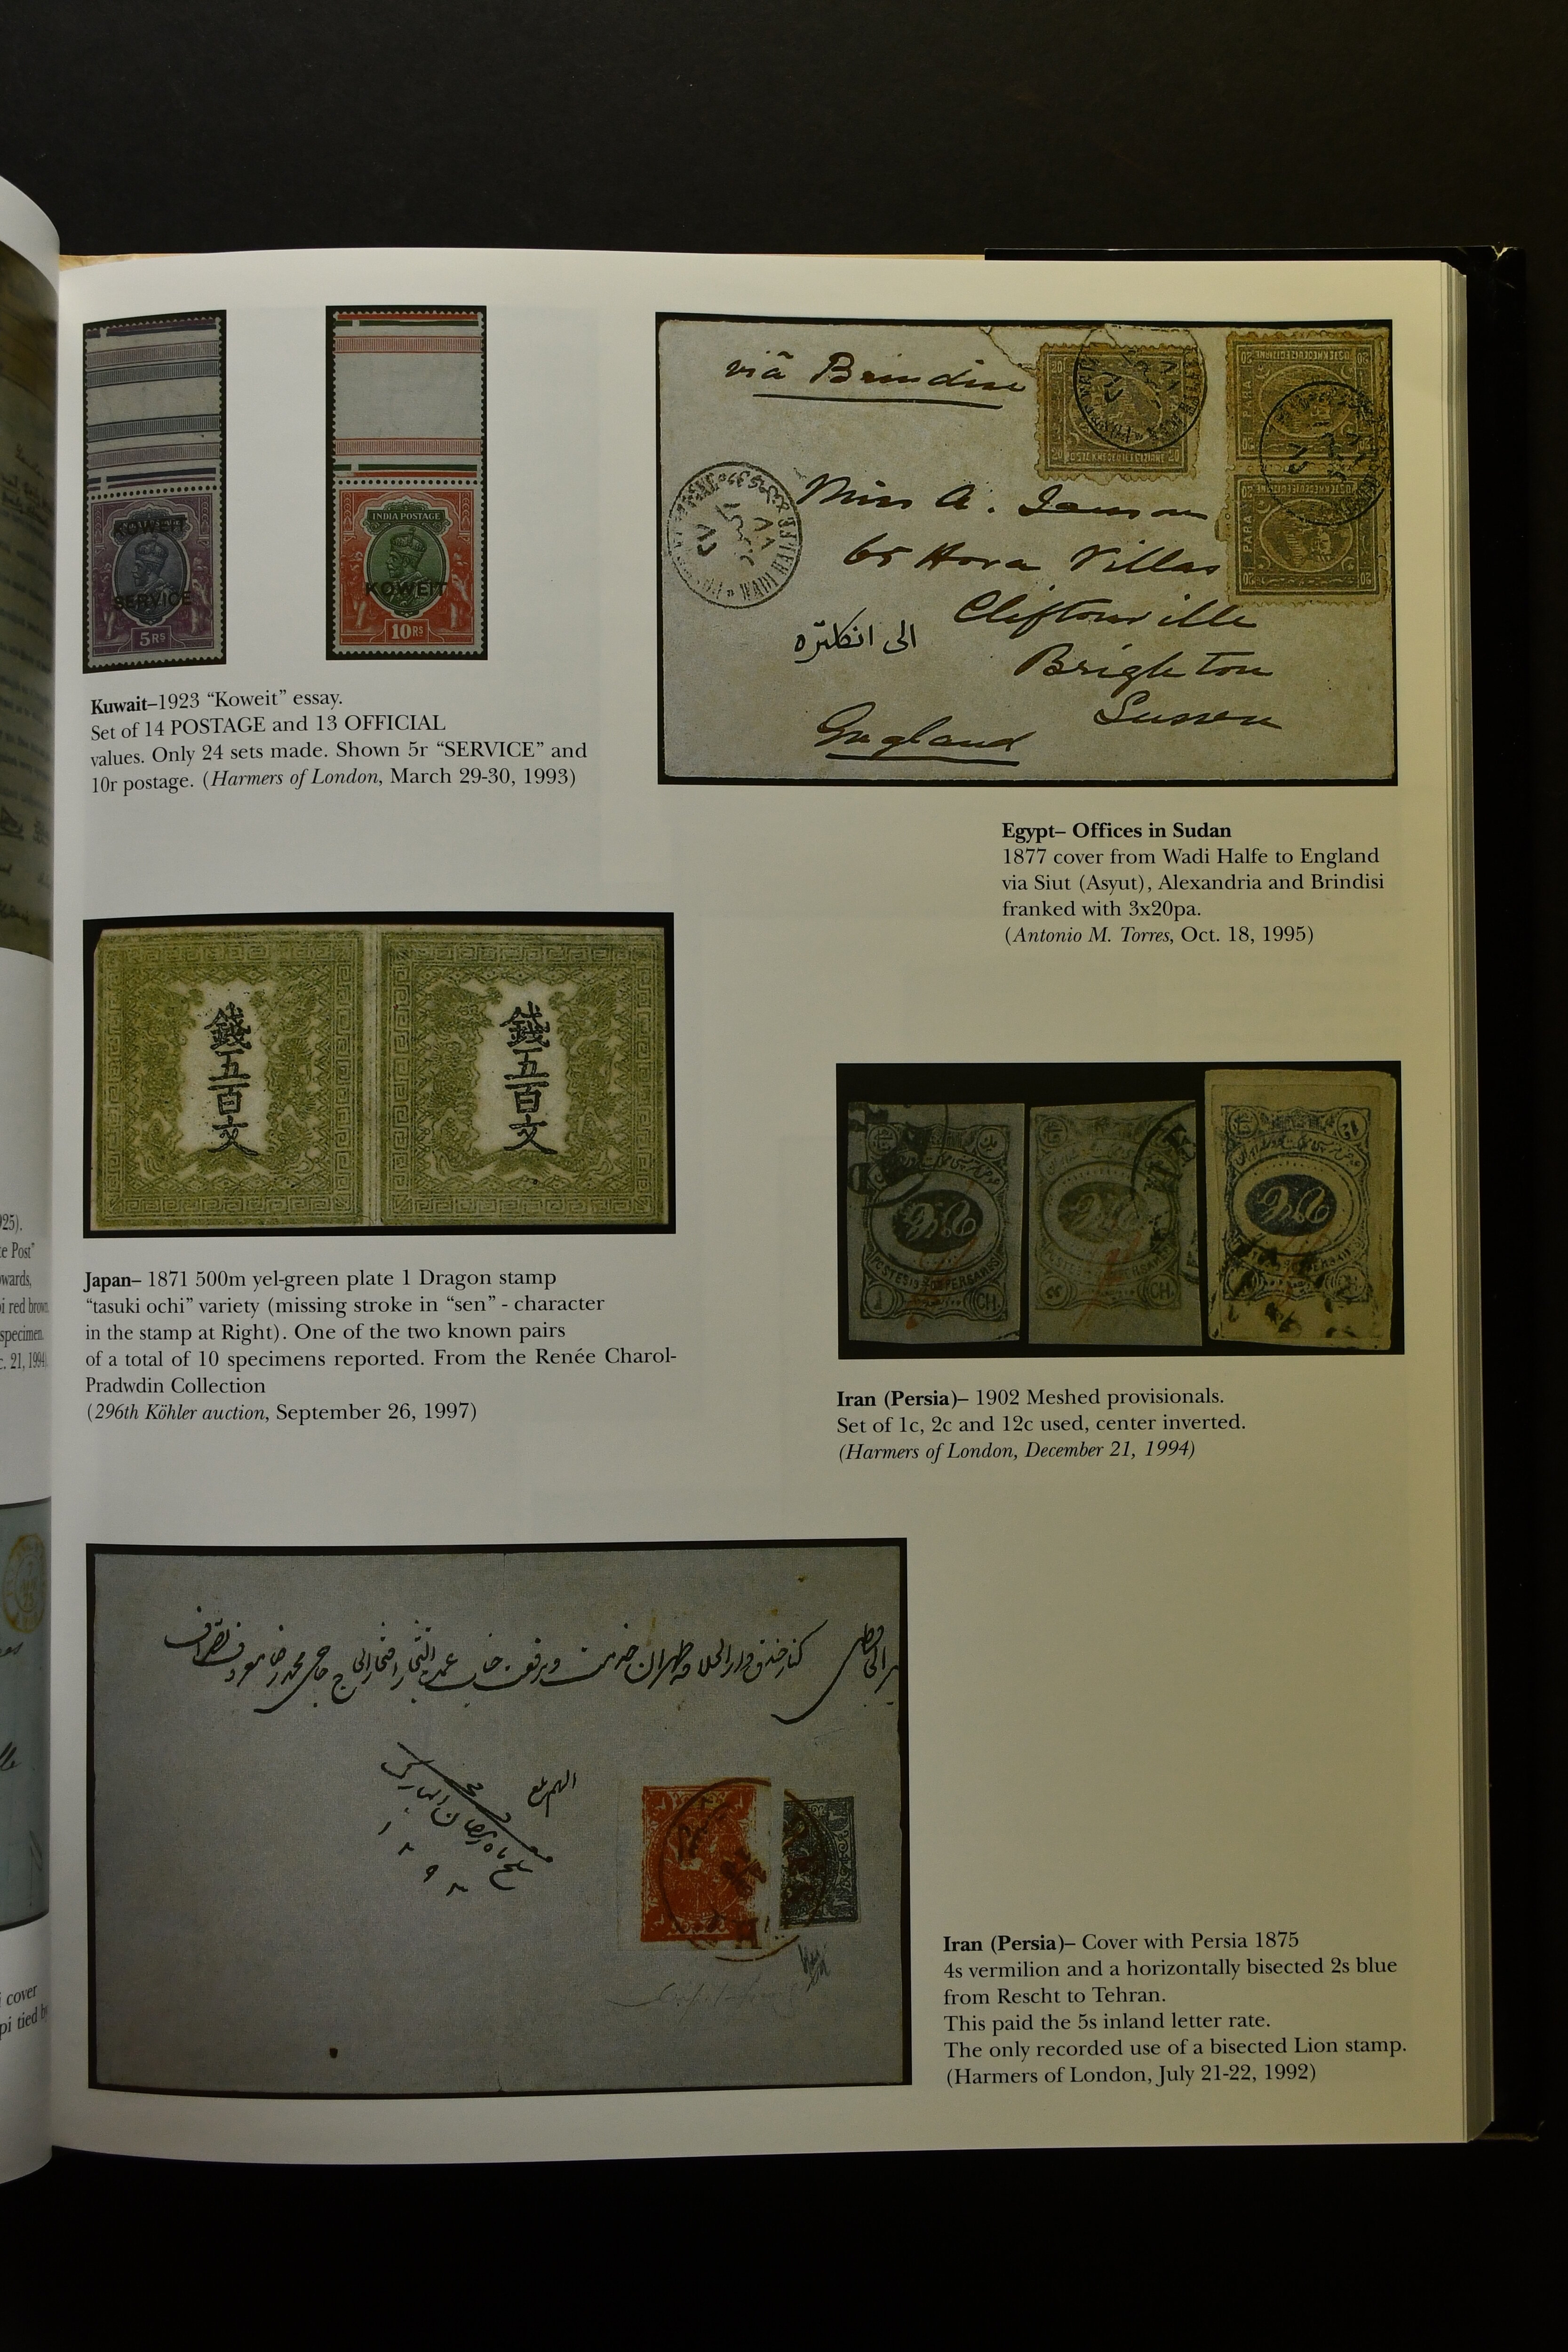 KOWEIT
SERVICE
5 RS
INDIA POSTAGE
KOWEIT
10 RS
Kuwait–1923 “Koweit” essay.
Set of 14 POSTAGE and 13 OFFICIAL
values. Only 24 sets made. Shown 5r “SERVICE” and
10r postage. (Harmers of London, March 29-30, 1993)
viâ Brindisi
Miss A.
65 Hova Villas
Cliftonville
Brighton
Sussex
England
الى انكلتره
WADI HALFE
PARA
20
Egypt– Offices in Sudan
1877 cover from Wadi Halfe to England
via Siut (Asyut), Alexandria and Brindisi
franked with 3x20pa.
(Antonio M. Torres, Oct. 18, 1995)
錢五百文
錢五百文
Japan– 1871 500m yel-green plate 1 Dragon stamp
“tasuki ochi” variety (missing stroke in “sen” - character
in the stamp at Right). One of the two known pairs
of a total of 10 specimens reported. From the Renée Charol-
Pradwdin Collection
(296th Köhler auction, September 26, 1997)
CH.
CH.
Iran (Persia)– 1902 Meshed provisionals.
Set of 1c, 2c and 12c used, center inverted.
(Harmers of London, December 21, 1994)
Iran (Persia)– Cover with Persia 1875
4s vermilion and a horizontally bisected 2s blue
from Rescht to Tehran.
This paid the 5s inland letter rate.
The only recorded use of a bisected Lion stamp.
(Harmers of London, July 21-22, 1992)
925).
te Post”
wards,
pi red brown
specimen.
c. 21, 1994)
cover
pi tied by